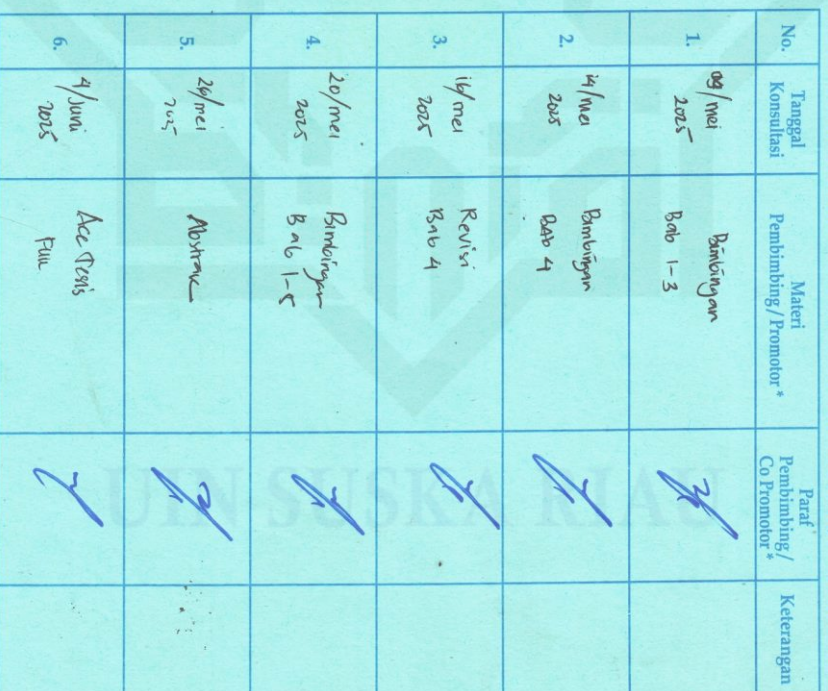 No.
Tanggal
Konsultasi
Materi
Pembimbing / Promotor *
Paraf
Pembimbing /
Co Promotor *
Keterangan
1.
09/mei
2025
Bimbingan
Bab 1-3
2.
14/mei
2025
Bimbingan
BAb 4
3.
16/mei
2025
Revisi
Bab 4
4.
20/mei
2025
Bimbingan
Bab 1-5
5.
26/mei
2025
Abstrak
6.
4/Juni
2025
Acc Tesis
Full
UIN SUSKA RIAU